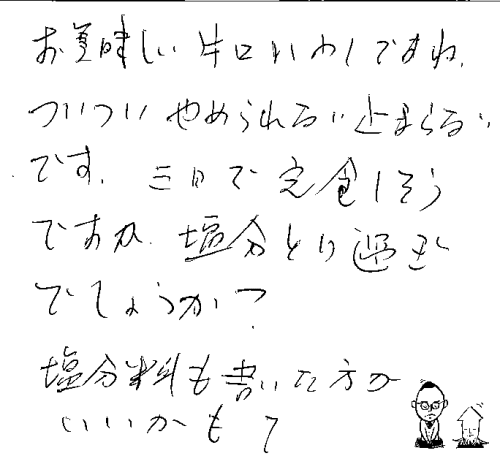 お美味しい牛口いわしですね、
ついついやめられない止まらない
です。三日で完食しそう
ですが、塩分とり過ぎ
でしょうか？
塩分料も書いた方が
いいかも